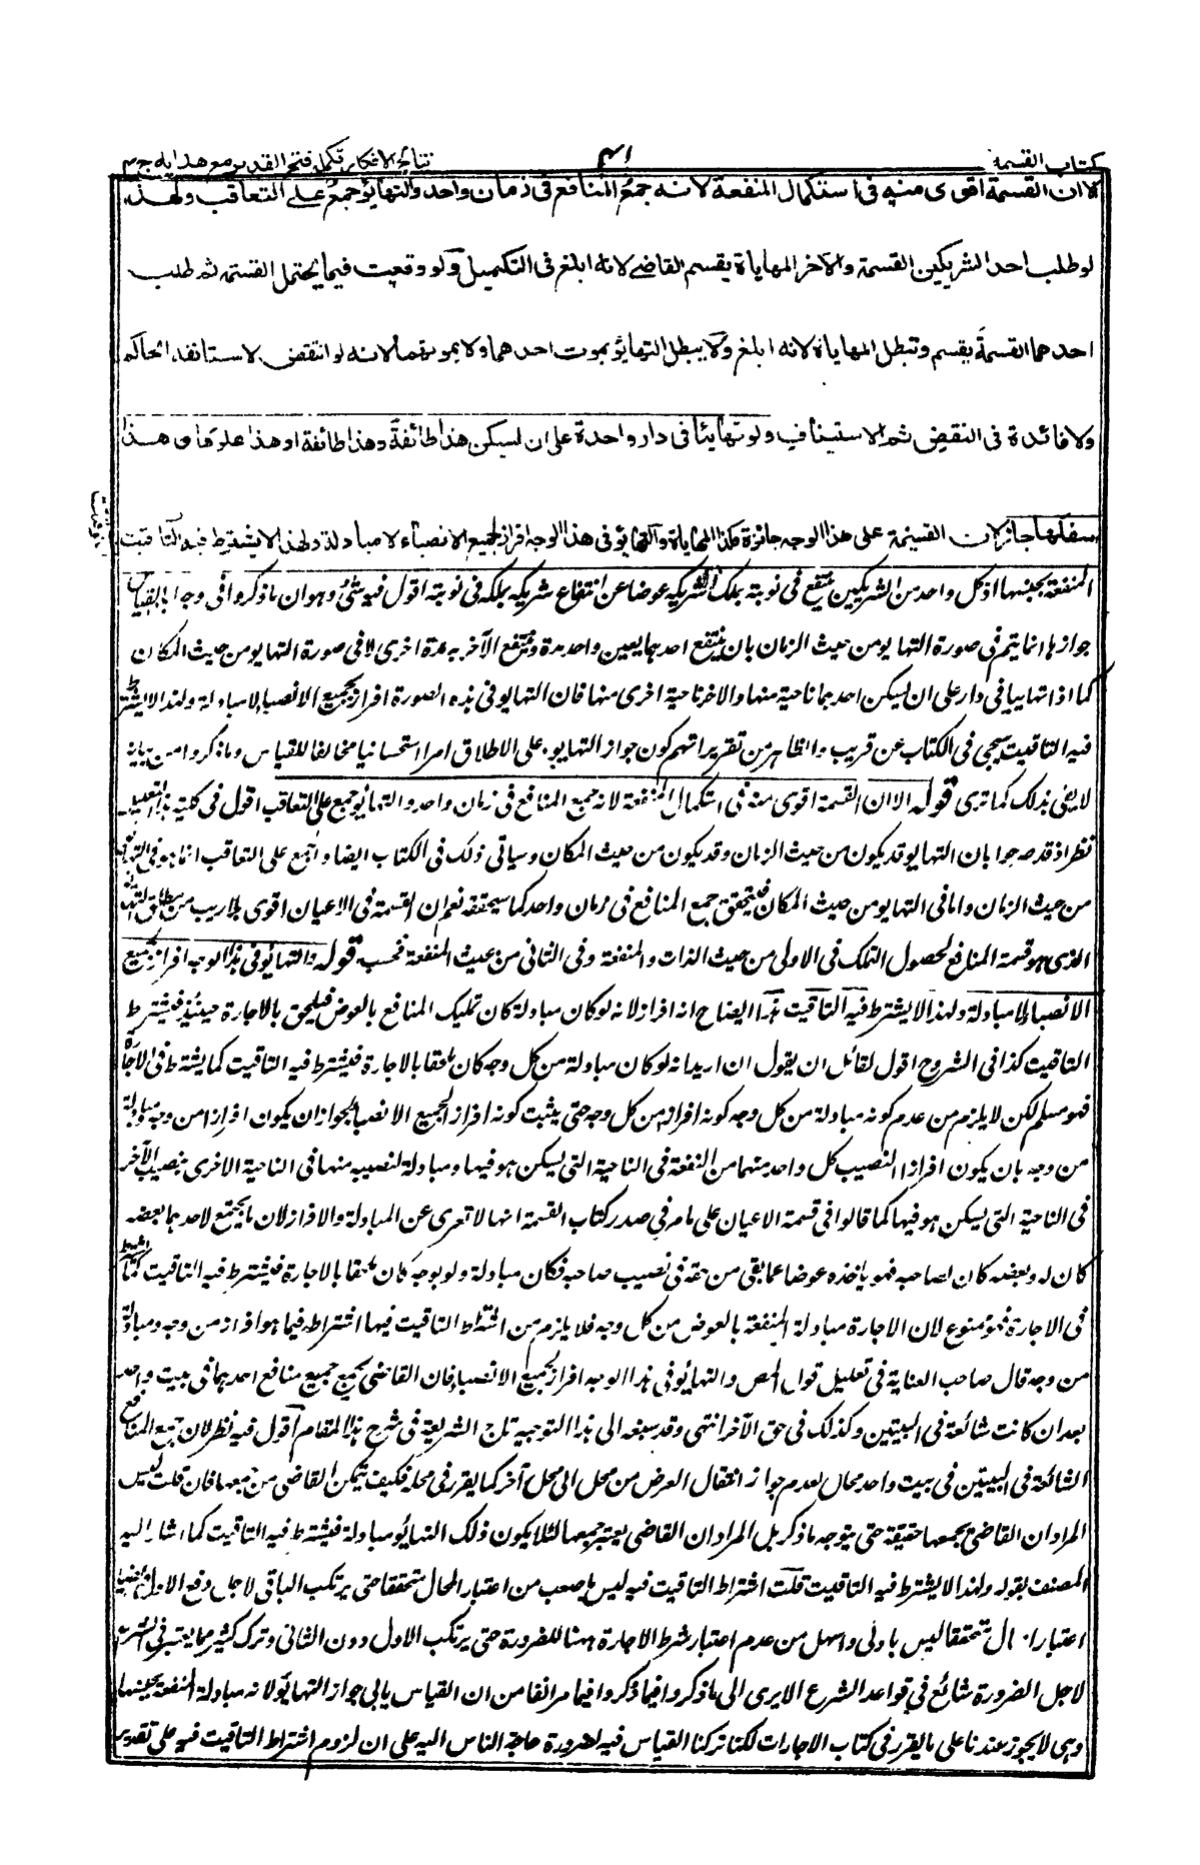 كتاب القسمة
٤١
نتائج الافكار تكملہ فتح القدير مع هدايه ج ٤
الا ان القسمة اقوى منه فى استكمال المنفعة لانه جمع المنافع فى زمان واحد والتهايؤ جمع على التعاقب ولهذا
لو طلب احد الشريكين القسمة والاخر المهاياة يقسم القاضى لانه ابلغ فى التكميل ولو وقعت فيما يحتمل القسمة ثم طلب
احدهما القسمة يقسم وتبطل المهاياة لانه ابلغ ولا يبطل التهايؤ بموت احدهما ولا بموتهما لانه لو انتقض لاستانفه الحاكم
ولا فائدة فى النقض ثم الاستيناف ولو تهايئا فى دار واحدة على ان يسكن هذا طائفة وهذا طائفة او هذا علوها وهذا
سفلها جاز لان القسمة على هذا الوجه جائزة فكذا المهاياة والتهايؤ فى هذا الوجه افراز لجميع الانصباء لا مبادلة ولهذا لا يشترط فيه التاقيت
المنفعة بجنسها اذ كل واحد من الشريكين ينتفع فى نوبته بملك شريكه عوضا عن انتفاع شريكه بملكه فى نوبته اقول فيه شئ وهو ان ما ذكروا فى وجه اباء القياس
جوازها انما يتم فى صورة التهايو من حيث الزمان بان ينتفع احدهما بعين واحد مدة وينتفع الآخر به مدة اخرى لا فى صورة التهايو من حيث المكان
كما اذا تهاييا فى دار على ان يسكن احدهما ناحية منها والاخر ناحية اخرى منها فان التهايو فى هذه الصورة افراز لجميع الانصباء لا مبادلة ولهذا لا يشترط
فيه التاقيت سيجئ فى الكتاب عن قريب والظاهر من تقريراتهم كون جواز التهايو على الاطلاق امرا استحسانيا مخالفا للقياس وما ذكروا من بيانه
لا يفى بذلك كما ترى قوله الا ان القسمة اقوى منه فى استكمال المنفعة لانه جمع المنافع فى زمان واحد والتهايؤ جمع على التعاقب اقول فى كلية هذا التعليل
نظر اذ قد صرحوا بان التهايو قد يكون من حيث الزمان وقد يكون من حيث المكان وسياتى ذلك فى الكتاب ايضا والجمع على التعاقب انما هو فى التهايؤ
من حيث الزمان واما فى التهايو من حيث المكان فيتحقق جمع المنافع فى زمان واحد كما سيحققه نعم ان القسمة فى الاعيان اقوى بلا ريب من مطلق التهايؤ
الذى هو قسمة المنافع لحصول التملك فى الاولى من حيث الذات والمنفعة وفى الثانى من حيث المنفعة فحسب قوله والتهايؤ فى هذا الوجه افراز لجميع
الانصباء لا مبادلة ولهذا لا يشترط فيه التاقيت هذا ايضاح انه افراز لانه لو كان مبادلة كان تمليك المنافع بالعوض فيلحق بالاجارة حينئذ فيشترط
التاقيت كذا فى الشروح اقول لقائل ان يقول ان اريد انه لو كان مبادلة من كل وجه كان ملحقا بالاجارة فيشترط فيه التاقيت كما يشترط فى الاجارة
فهو مسلم لكن لا يلزم من عدم كونه مبادلة من كل وجه كونه افرازا من كل وجه حتى يثبت كونه افرازا لجميع الانصباء لجواز ان يكون افرازا من وجه مبادلة
من وجه بان يكون افرازا النصيب كل واحد منهما من المنفعة فى الناحية التى يسكن هو فيها ومبادلة لنصيبه منها فى الناحية الاخرى بنصيب الآخر
فى الناحية التى يسكن هو فيها كما قالوا فى قسمة الاعيان على ما مر فى صدر كتاب القسمة انها لا تعرى عن المبادلة والافراز لان ما يجتمع لاحدهما بعضه
كان له وبعضه كان لصاحبه فهو ياخذه عوضا عما بقى من حقه فى نصيب صاحبه فكان مبادلة ولو بوجه كان ملحقا بالاجارة فيشترط فيه التاقيت كما يشترط
فى الاجارة فهو ممنوع لان الاجارة مبادلة المنفعة بالعوض من كل وجه فلا يلزم من اشتراط التاقيت فيها اشتراطه فيما هو افراز من وجه ومبادلة
من وجه قال صاحب العناية فى تعليل قول المص والتهايؤ فى هذا الوجه افراز لجميع الانصباء فان القاضى يجمع جميع منافع احدهما فى بيت واحد
بعد ان كانت شائعة فى البيتين وكذلك فى حق الآخر انتهى وقد سبقه الى هذا التوجيه تاج الشريعة فى شرح هذا المقام اقول فيه نظر لان جمع المنافع
الشائعة فى البيتين فى بيت واحد محال لعدم جواز انتقال العرض من محل الى محل آخر كما يقرر فى محله فكيف يتمكن القاضى من جمعها فان قلت ليس
المراد ان القاضى يجمعها حقيقة حتى يتوجه ما ذكر بل المراد ان القاضى يعتبر جمعها لئلا يكون ذلك التهايؤ مبادلة فيشترط فيه التاقيت كما اشار اليه
المصنف بقوله ولهذا لا يشترط فيه التاقيت قلت اشتراط التاقيت فيه ليس باصعب من اعتبار المحال متحققا حتى يرتكب الباقى لاجل دفع الاول
اعتبار المحال متحققا ليس باولى واسهل من عدم اعتبار شرط الاجارة ههنا للضرورة حتى يرتكب الاول دون الثانى وترك كثير مما يعتبر فى الشرع
لاجل الضرورة شائع فى قواعد الشرع الا يرى الى ما ذكروا فيما ذكروا فيما مر انفا من ان القياس يابى جواز التهايؤ لانه مبادلة المنفعة بجنسها
وهى لا يجوز عندنا على ما تقرر فى كتاب الاجارات لكنا تركنا القياس فيه لضرورة حاجة الناس اليه على ان لزوم اشتراط التاقيت فيه على تقدير